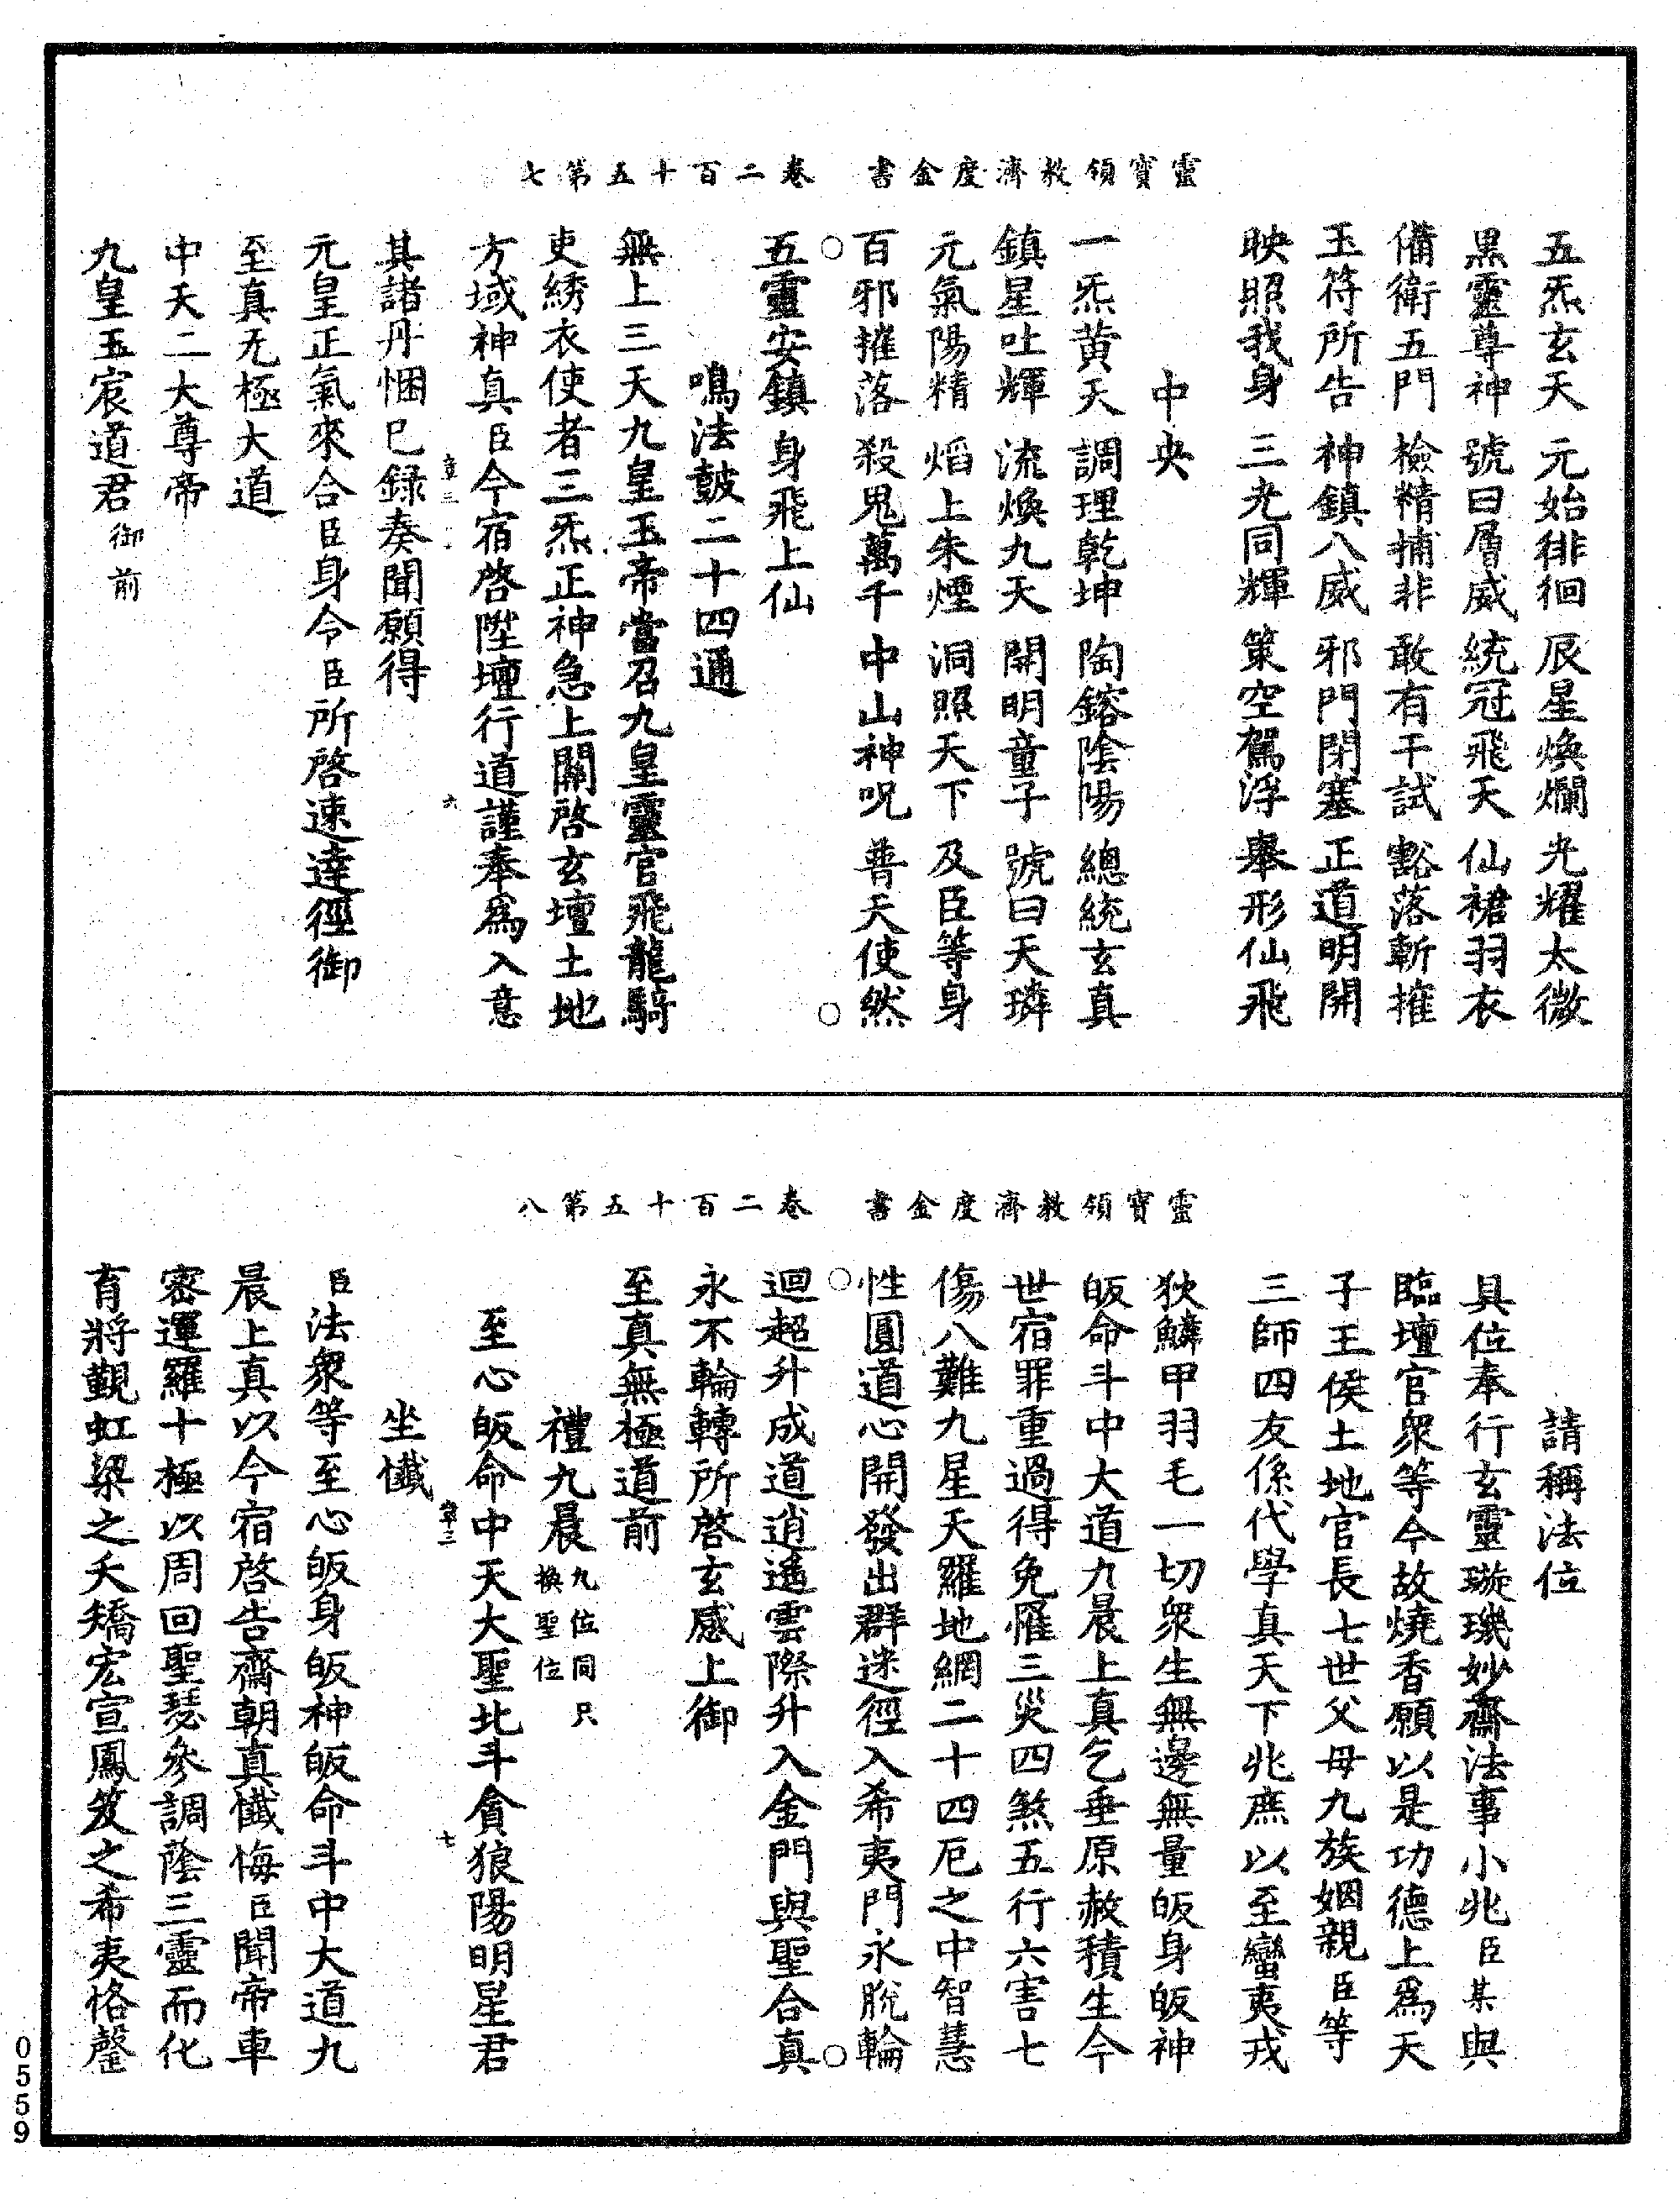 靈寶領教濟度金書　卷二百十五第七
五炁玄天　元始徘徊　辰星煥爛　光耀太微
黑靈尊神　號曰層威　統冠飛天　仙裙羽衣
備衛五門　檢精捕非　敢有干試　豁落斬摧
玉符所告　神鎮八威　邪門閉塞　正道明開
映照我身　三光同輝　策空駕浮　舉形仙飛
中央
一炁黃天　調理乾坤　陶鎔陰陽　總統玄真
鎮星吐輝　流煥九天　開明童子　號曰天璘
元氣陽精　焰上朱煙　洞照天下　及臣等身
百邪摧落　殺鬼萬千　中山神呪　普天使然
五靈安鎮　身飛上仙
鳴法鼓二十四通
無上三天九皇玉帝當召九皇靈官飛龍騎
吏綉衣使者三炁正神急上關啓玄壇土地
方域神真臣今宿啓陞壇行道謹奉爲入意
章三　六
其諸丹悃已録奏聞願得
元皇正氣來合臣身令臣所啓速達徑御
至真无極大道
中天二大尊帝
九皇玉宸道君御前
靈寶領教濟度金書　卷二百十五第八
請稱法位
具位奉行玄靈璇璣妙齋法事小兆臣某與
臨壇官衆等今故燒香願以是功德上爲天
子王侯土地官長七世父母九族姻親臣等
三師四友係代學真天下兆庶以至蠻夷戎
狄鱗甲羽毛一切衆生無邊無量皈身皈神
皈命斗中大道九晨上真乞垂原赦積生今
世宿罪重過得免罹三災四煞五行六害七
傷八難九星天羅地網二十四厄之中智慧
性圓道心開發出群迷徑入希夷門永脫輪
迴超升成道逍遙雲際升入金門與聖合真
永不輪轉所啓玄感上御
至真無極道前
禮九晨九位同只換聖位
至心皈命中天大聖北斗貪狼陽明星君
章三　七
坐懺
臣法衆等至心皈身皈神皈命斗中大道九
晨上真以今宿啓告齋朝真懺悔臣聞帝車
密運羅十極以周回聖瑟參調蔭三靈而化
育將觀虹梁之夭矯宏宣鳳笈之希夷恪罄
0559